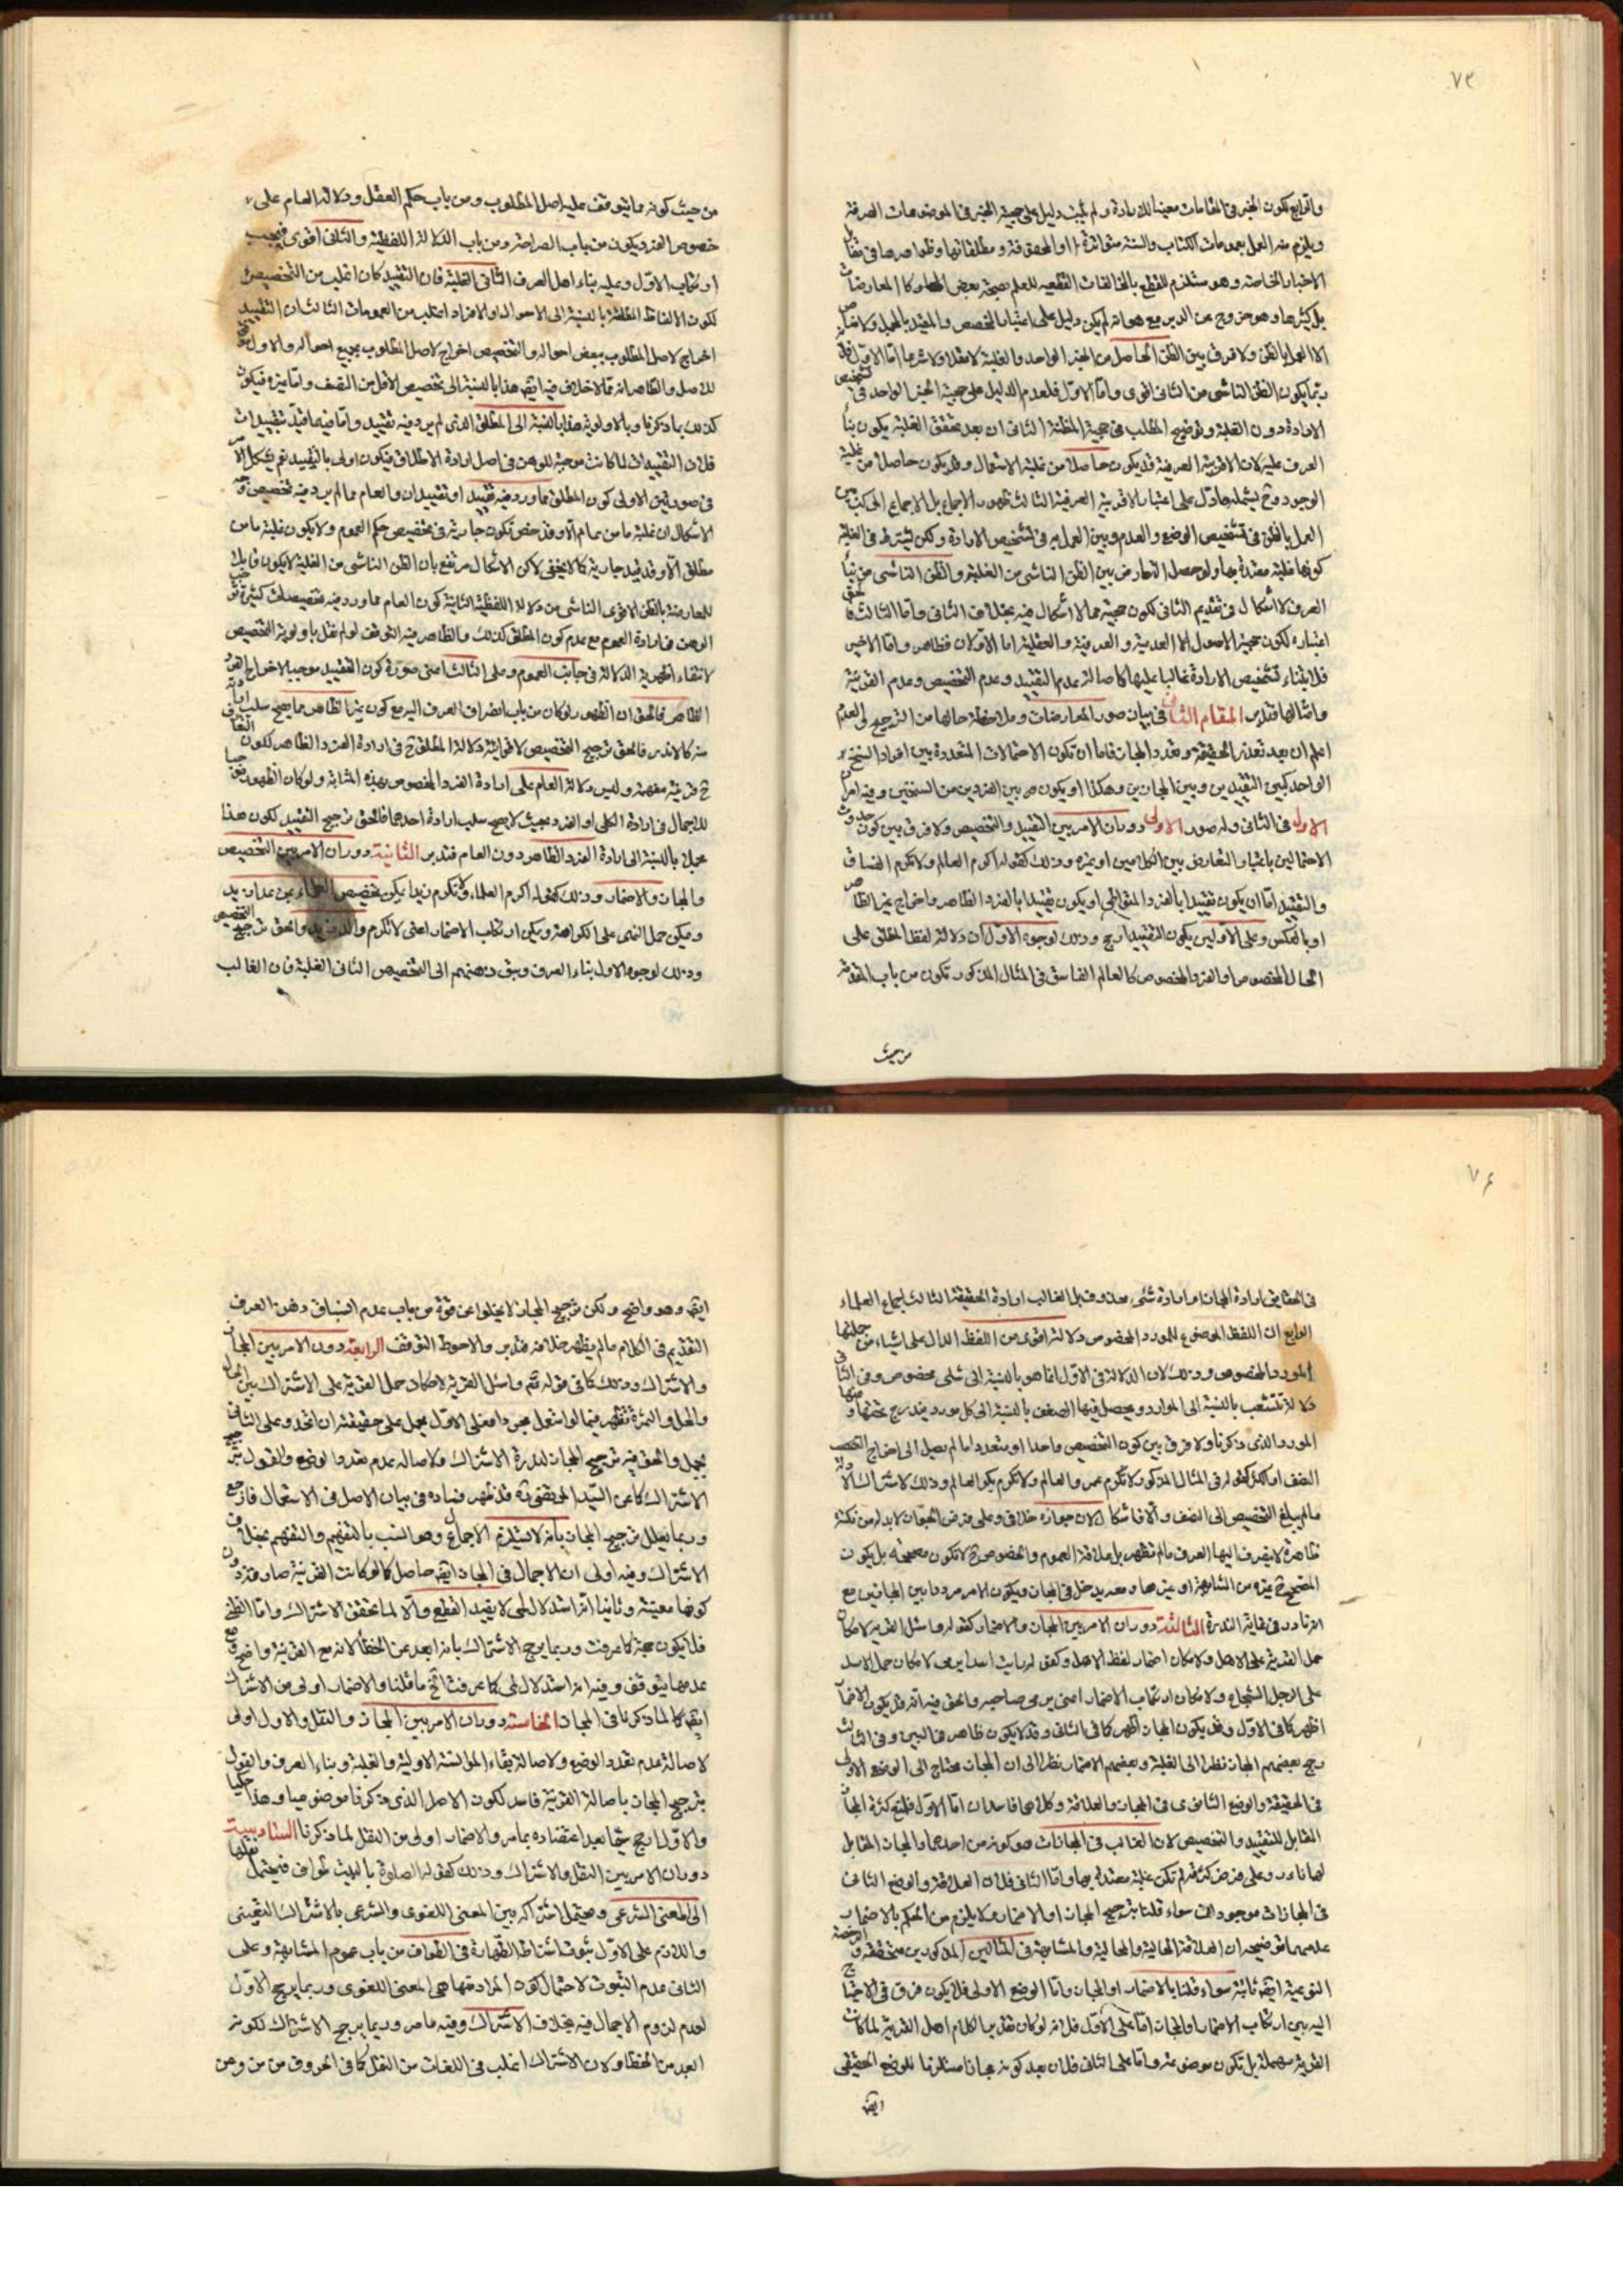 ٧٣
واقرانه لكون الخبر فى المقامات معينا للارادة ولم يثبت دليل على حجية الخبر فى الموضوعات الصرفة
ويلزم منه العمل بعمومات الكتاب والسنة متواترة او المحفوفة ومطلقاتها وظواهرها فى مقابل
الاخبار الخاصة وهو مستلزم للقطع بالمخالفات القطعيه للعلم بصحة بعض المعارضات
بل كثيرها وهو خروج عن الدين مع هو انه لم يكن دليل على اعتبار المخصص والمقيد بالمجمل
الا العمل بالظن ولا فرق بين الظن الحاصل من الخبر الواحد والغلبة لا عقلا ولا شرعا اما الاول
ربما يكون الظن الناشى من الثانى اقوى واما الاول فلعدم الدليل على حجية الخبر الواحد فى تشخيص
الارادة دون الغلبة وتوضيح المطلب فى حجية المظنة الثانى ان بعد تحقق الغلبة يكون بناء
العرف عليه لان الاقربية العرفية قد يكون حاصلا من غلبة الاستعمال وقد يكون حاصلا من غلبة
الوجود وح يشمله ما دل على اعتبار الاقربية العرفية الثالث ظهور الاجماع بل الاجماع المركب بين
العمل بالظن فى تشخيص الوضع والعدم وبين العمل به فى تشخيص الارادة ولكن يشترط فى الغلبة
كونها غلبة معتدة بها ولو حصل التعارض بين الظن الناشى من الغلبة والظن الناشى من بناء
العرف لا اشكال فى تقديم الثانى لكون حجية مما لا اشكال فيه بخلاف الثانى واما الثالث
اعتباره لكون حجية الاصول الا العدمية والعرفية والعقلية اما الاولان فظاهر واما الاخير
فلابتناء تشخيص الارادة غالبا عليها كاصالة عدم التقييد وعدم التخصيص وعدم القرينة
وامثالها فتدبر المقام الثانى فى بيان صور المعارضات وملاحظة حالها من الترجيح والعدم
اعلم ان بعد تعذر الحقيقة وتعدد المجاز فاما ان تكون الاحتمالات المتعددة بين افراد السنخ
الواحد كبين التقييدين وبين المجازين وهكذا او يكون بين الفردين من السنخين وفيه امر
الاول فى الثانى وله صور الاولى دوران الامر بين التقييد والتخصيص ولا فرق بين كون حدوث
الاحتمالين باعتبار التعارض بين الكلامين او غيره وذلك كقوله اكرم العالم ولا تكرم الفساق
والتقييد اما ان يكون تقييدا بالفرد الخفى او يكون تقييدا بالفرد الظاهر واخراج غير الظاهر
او بالعكس وعلى الاولين يكون التقييد ارجح وذلك لوجوه الاول ان دلالة لفظ المطلق على
الحال المخصوص او الفرد المخصوص كالعالم الفاسق فى المثال المذكور تكون من باب المقدمة
من حيث
من حيث كونه مما يتوقف عليه اصل المطلوب ومن باب حكم العقل ودلالة العام على
خصوص الفرد يكون من باب الصراحة ومن باب الدلالة اللفظية والثانى اقوى فيجب
ارتكاب الاول وعليه بناء اهل العرف الثانى الغلبة فان التقييد كان اغلب من التخصيص
لكون الالفاظ المطلقة بالنسبة الى الاحوال والافراد اغلب من العمومات الثالث ان التقييد
اخراج لاصل المطلوب ببعض احواله والتخصيص اخراج لاصل المطلوب بجميع احواله والاول
للاصل والظاهر انه مما لا خلاف فيه ايضا هذا بالنسبة الى تخصيص الاقل من النصف واما غيره فيكون
كذلك بما ذكرنا وبالاولوية هذا بالنسبة الى المطلق الذى لم يرد فيه تقييد واما فيما قيد بتقييدات
فلان التقييدات لما كانت موجبة للوهن فى اصل ارادة الاطلاق فيكون اولى بالتقييد نعم يشكل الامر
فى صورتين الاولى كون المطلق مما ورد فيه تقييد او تقييدان والعام مما لم يرد فيه تخصيص وجه
الاشكال ان غلبة ما من عام الا وقد خص تكون جارية فى تخصيص حكم العموم ولا يكون غلبة ما من
مطلق الا وقد قيد جارية كما لا يخفى لكن الاشكال مرتفع بان الظن الناشى من الغلبة لا يكون قابلا
للمعارضة بالظن الاقوى الناشى من دلالة اللفظية الثانية كون العام مما ورد فيه تخصيصات كثيرة توجب
الوهن فى ارادة العموم مع عدم كون المطلق كذلك والظاهر فيه التوقف لو لم نقل باولوية التخصيص
لانتفاء اظهرية الدلالة فى جانب العموم وعلى الثالث اعنى صورة كون التقييد موجبا لاخراج الفرد
الظاهر فالحق ان الظهور لو كان من باب انصراف العرف اليه مع كون غير الظاهر مما يصح سلب
منه كالاندر فالحق ترجيح التخصيص لاقوائية دلالة المطلق ح فى ارادة الفرد الظاهر لكون
ح قرينة مفهمة وليس دلالة العام على ارادة الفرد المخصوص بهذه المثابة ولو كان الظهور
للاجمال فى ارادة الكلى او الفرد بحيث لا يصح سلب ارادة احدهما فالحق ترجيح التقييد لكون هذا
مجملا بالنسبة الى ارادة الفرد الظاهر دون العام فتدبر الثانية دوران الامر بين التخصيص
والمجاز والاضمار وذلك كقوله اكرم العلماء ولا تكرم زيدا يمكن تخصيص العلماء بمن عدا زيد
ويمكن حمل النهى على الكراهة ويمكن ارتكاب الاضمار اعنى لا تكرم والد زيد والحق ترجيح التخصيص
وذلك لوجوه الاول بناء العرف وسبق ذهنهم الى التخصيص الثانى الغلبة فان الغالب
٧٤
فى الحقايق ارادة المجاز او ارادة شئى محذوف بل الغالب ارادة الحقيقة الثالث اجماع العلماء
الرابع ان اللفظ الموضوع للمورد المخصوص دلالته اقوى من اللفظ الدال على اشياء من جملتها
المورد المخصوص وذلك لان الدلالة فى الاول انما هو بالنسبة الى شئى مخصوص وفى الثانى
دلالة تتشعب بالنسبة الى الموارد ويحصل فيها الضعف بالنسبة الى كل مورد يندرج تحتها ومنها
المورد الذى ذكرنا ولا فرق بين كون التخصيص واحدا او متعددا ما لم يصل الى اخراج
النصف او اكثر كقوله فى المثال المذكور لا تكرم عمرو العالم ولا تكرم بكر العالم وذلك لاشتراك الادلة
ما لم يبلغ التخصيص الى النصف والا فاشكال لان جوازه خلافى وعلى فرض الجواز لا بد له من نكتة
ظاهرة لا ينصرف اليها العرف ما لم تظهر بل علاقة العموم والخصوص ح لا تكون مصححة بل يكون
المصحح ح غيره من المشابهة او غيرها ومعه يدخل فى المجاز ويكون الامر مرددا بين المجازين مع
انه نادر فى غاية الندرة الثالثة دوران الامر بين المجاز والاضمار كقوله واسئل القريه لامكان
حمل القرية على الاهل ولامكان اضمار لفظ الاهل وكقوله رايت اسدا يرمى لامكان حمل الاسد
على الرجل الشجاع ولامكان ارتكاب الاضمار اعنى يرمى صاحبه والحق فيه انه قد يكون الاضمار
اظهر كما فى الاول وقد يكون المجاز اظهر كما فى الثانى وقد لا يكون ظاهر فى البين وفى الثالث
رجح بعضهم المجاز نظرا الى الغلبة وبعضهم الاضمار نظرا الى ان المجاز محتاج الى الوضع الاولى
فى الحقيقة والوضع الثانوى فى المجاز والعلاقة وكلاهما فاسدان اما الاول فلمنع كثرة المجاز
المقابل للتقييد والتخصيص لان الغالب فى المجازات هو كونه من احدهما والمجاز المقابل
لهما نادر وعلى فرض كثرته لم تكن غلبة معتدة بها واما الثانى فلان العلاقة والوضع الثانى
فى المجازات موجودان سواء قلنا بترجيح المجاز او الاضمار ولا يلزم من الحكم بالاضمار
عدمهما توضيحه ان العلاقة الحالية والمحالية والمشابهة فى المثالين المذكورين متحققة والرخصة
النوعية ايضا ثابتة سواء قلنا بالاضمار او المجاز واما الوضع الاولى فلا يكون فرق فى الاحتياج
اليه بين ارتكاب الاضمار او المجاز اما على الاول فلانه لو كان تقدير الكلام اهل القرية لما كانت
القرية مهملة بل تكون موضوعة واما على الثانى فلان بعد كونه مجازا مستلزما للوضع الحقيقى
ايضا
ايضا وهو واضح ولكن ترجيح المجاز لا يخلو عن قوة من باب عدم انسباق ذهن العرف
التقديم فى الكلام ما لم يظهر خلافه فتدبر والاحوط التوقف الرابعة دوران الامر بين المجاز
والاشتراك وذلك كما فى قوله تم واسئل القرية لامكان حمل القرية على الاشتراك بين الحال
والمحل والثمرة تظهر فيما لو استعمل مجردا فعلى الاول يحمل على حقيقته ان اتحد وعلى الثانى
يجمل والحق فيه ترجيح المجاز لندرة الاشتراك ولاصالة عدم تعدد الوضع والقول بترجيح
الاشتراك كما عن السيد المرتضى ره قد ظهر فساده فى بيان الاصل فى الاستعمال فارجع
وربما يعلل ترجيح المجاز بانه لا يستلزم الاجماع وهو انسب بالتفهيم والتفهم بخلاف
الاشتراك وفيه اولى ان الاجمال فى المجاز ايضا حاصل كما لو كانت القرينة صارفة دون
كونها معينة وثانيا انه استدلال لمى لا يفيد القطع والا لما تحقق الاشتراك واما الظن
فلا يكون حجة كما عرفت وربما يرجح الاشتراك بانه ابعد عن الخطأ لانه مع القرينة واضح ومع
عدمها يتوقف وفيه انه استدلال لمى كما عرفت فالحق ما قلنا والاضمار اولى من الاشتراك
ايضا كما لما ذكرنا فى المجاز الخامسة دوران الامر بين المجاز والنقل والاول اولى
لاصالة عدم تعدد الوضع ولاصالة بقاء الموانسة الاولية والغلبة وبناء العرف والقول
بترجيح المجاز باصالة القرينة فاسد لكون الاصل الذى ذكرنا موضوعيا وهذا حكميا
والاول ارجح سيما بعد اعتضاده بما مر والاضمار اولى من النقل لما ذكرنا السادسة
دوران الامر بين النقل والاشتراك وذلك كقوله الصلوة بالبيت طواف فيحتمل نقلها
الى المعنى الشرعى ويحتمل اشتراكه بين المعنى اللغوى والشرعى بالاشتراك التعينى
واللازم على الاول ثبوت اشتراط الطهارة فى الطواف من باب عموم المشابهة وعلى
الثانى عدم الثبوت لاحتمال كون المراد منها هى المعنى اللغوى وربما يرجح الاول
لعدم لزوم الاجمال فيه بخلاف الاشتراك وفيه ما مر وربما يرجح الاشتراك لكونه
ابعد من الخطا ولان الاشتراك اغلب فى اللغات من النقل كما فى الحروف من من وعن